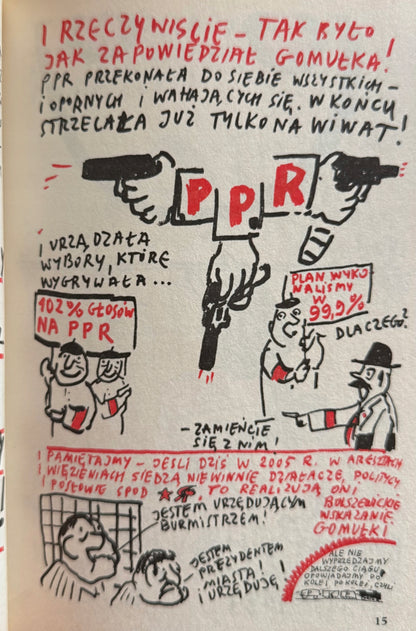 I RZECZYWIŚCIE – TAK BYŁO
JAK ZAPOWIEDZIAŁ GOMUŁKA!
PPR PRZEKONAŁA DO SIEBIE WSZYSTKICH –
I OPORNYCH I WAHAJĄCYCH SIĘ. W KOŃCU
STRZELAŁA JUŻ TYLKO NA WIWAT!
PPR
I URZĄDZAŁA
WYBORY, KTÓRE
WYGRYWAŁA...
102% GŁOSÓW
NA PPR
PLAN WYKO
NALIŚMY
W
99,9%
DLACZEGO?
– ZAMIEŃCIE
SIĘ Z NIM!
PAMIĘTAJMY – JEŚLI DZIŚ W 2005 R. W ARESZTACH
I WIĘZIENIACH SIEDZĄ NIEWINNIE DZIAŁACZE, POLITYCY
I POSŁOWIE SPOD, TO REALIZUJĄ ONI
BOLSZEWICKIE
WSKAZANIE
GOMUŁKI
JESTEM URZĘDUJĄCYM
BURMISTRZEM!
JESTEM
PREZYDENTEM
MIASTA!
I URZĘDUJĘ!
ALE NIE
WYPRZEDZAJMY
DALSZEGO CIĄGU
OPOWIADAJMY PO
KOLEI PO KOLEI, CZYLI
15